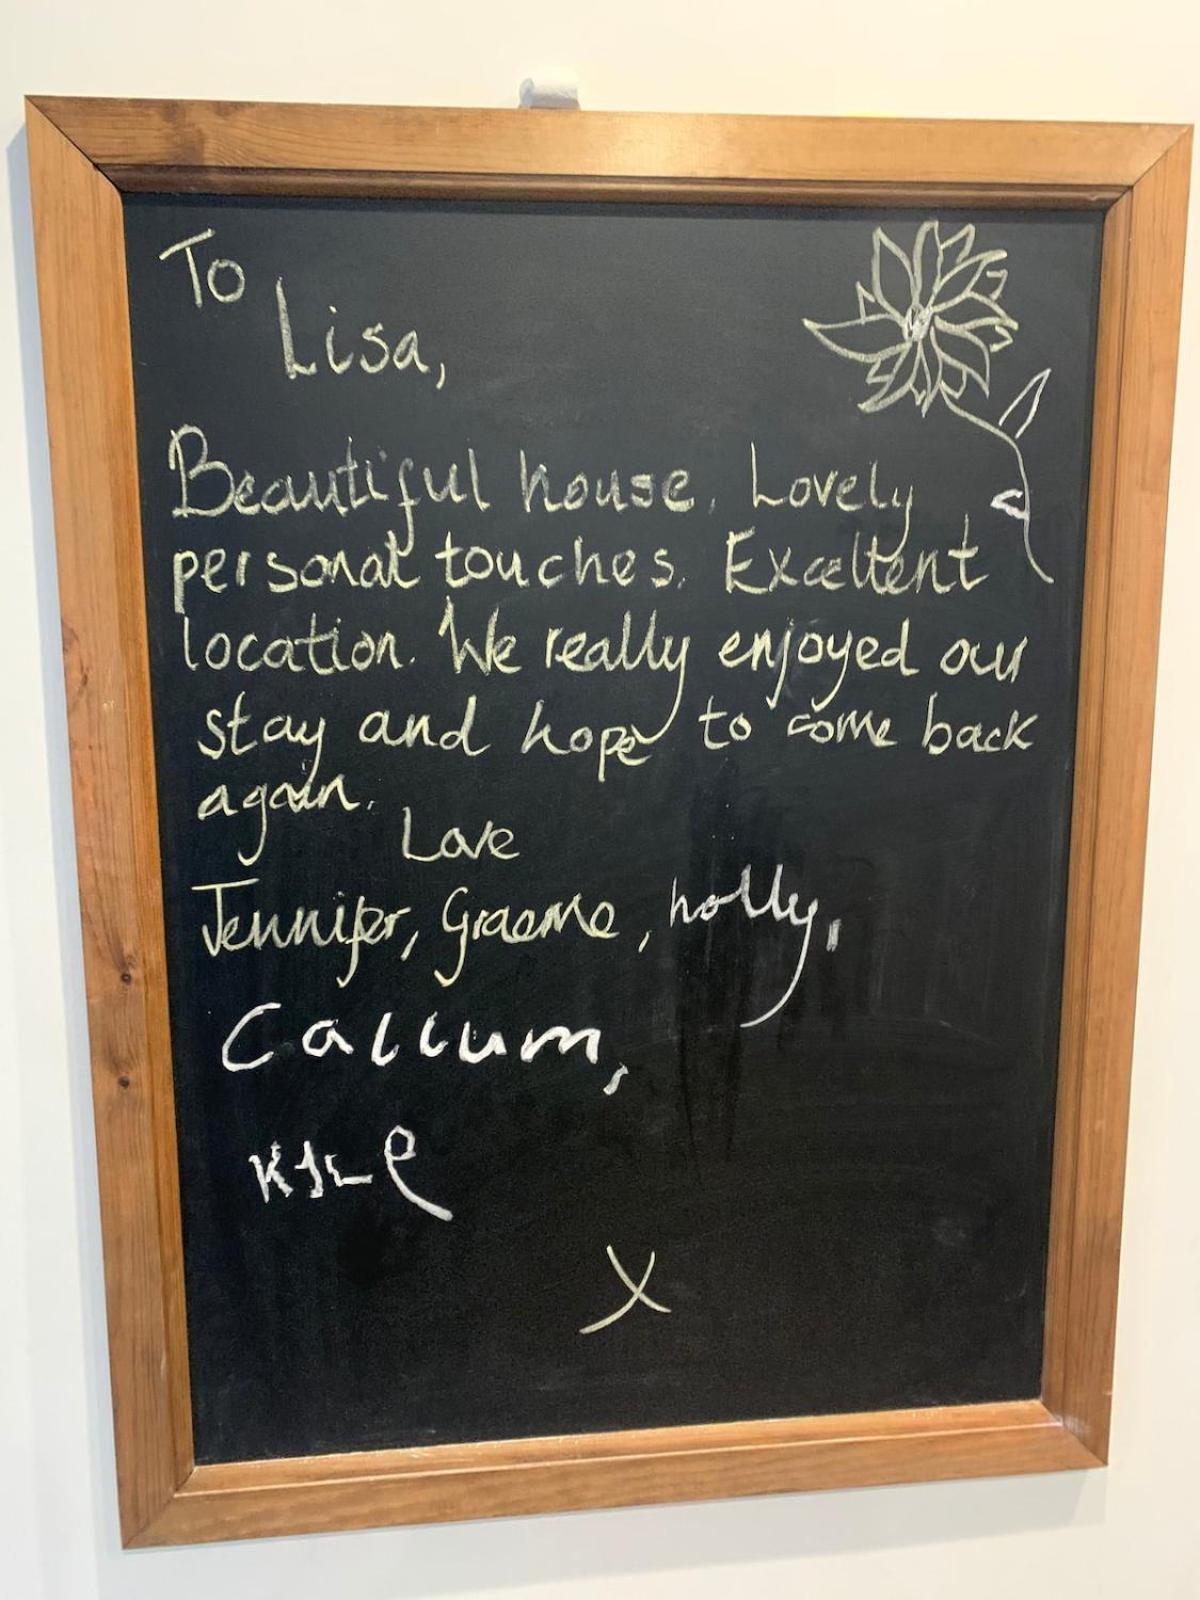 To
Lisa,
Beautiful house. Lovely
personal touches. Excellent
location. We really enjoyed our
stay and hope to come back
again.
Love
Jennifer, Graeme, holly,
Callum,
KyLe
X